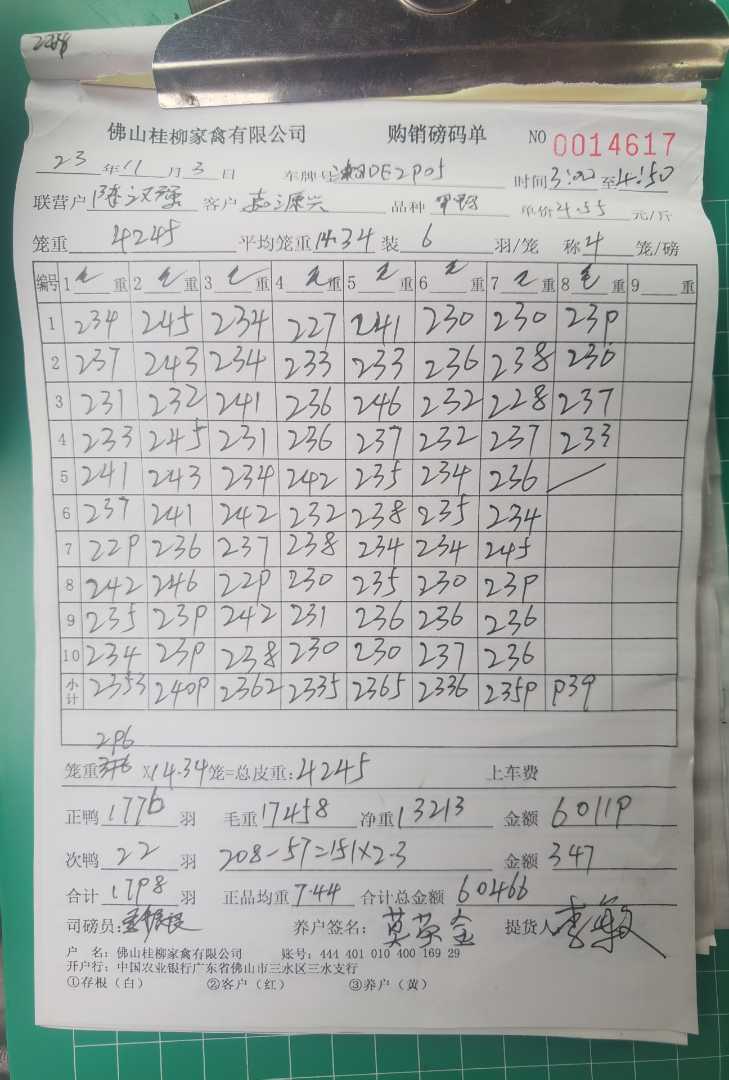 2258
佛山桂柳家禽有限公司 购销磅码单 NO 0014617
23 年 11 月 3 日 车牌号 湘DE2905 时间 3:00 至 4:50
联营户 陈汉强 客户 嘉源兴 品种 单价 4.55 元/斤
笼重 4245 平均笼重 14.34 装 6 羽/笼 称 4 笼/磅
编号 1 重 2 重 3 重 4 重 5 重 6 重 7 重 8 重 9 重
1 234 245 234 227 241 230 230 239
2 237 243 234 233 233 236 238 230
3 231 232 241 236 246 232 228 237
4 233 245 231 236 237 232 237 233
5 241 243 234 242 235 234 236
6 237 241 242 232 238 235 234
7 229 236 237 238 234 234 245
8 242 246 229 230 235 230 239
9 235 239 242 231 236 236 236
10 234 239 238 230 230 237 236
小计 2353 2409 2362 2335 2365 2336 2359 939
296
笼重 X14.34 笼=总皮重: 4245 上车费
正鸭 1776 羽 毛重 17458 净重 13213 金额 60119
次鸭 22 羽 208-57=151×2.3 金额 347
合计 1798 羽 正品均重 7.44 合计总金额 60466
司磅员: 养户签名: 莫荣金 提货人 李敏
户 名: 佛山桂柳家禽有限公司 账号: 444 401 010 400 169 29
开户行: 中国农业银行广东省佛山市三水区三水支行
①存根(白) ②客户(红) ③养户(黄)